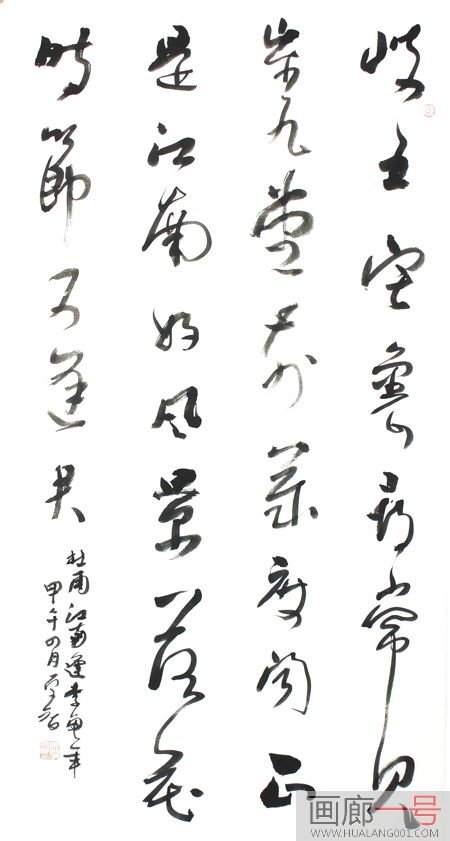 岐王宅裏尋常見
崔九堂前幾度聞正
是江南好風景落花
時節又逢君
杜甫江南逢李龜年
甲午四月
画廊一号
WWW.HUALANG001.COM